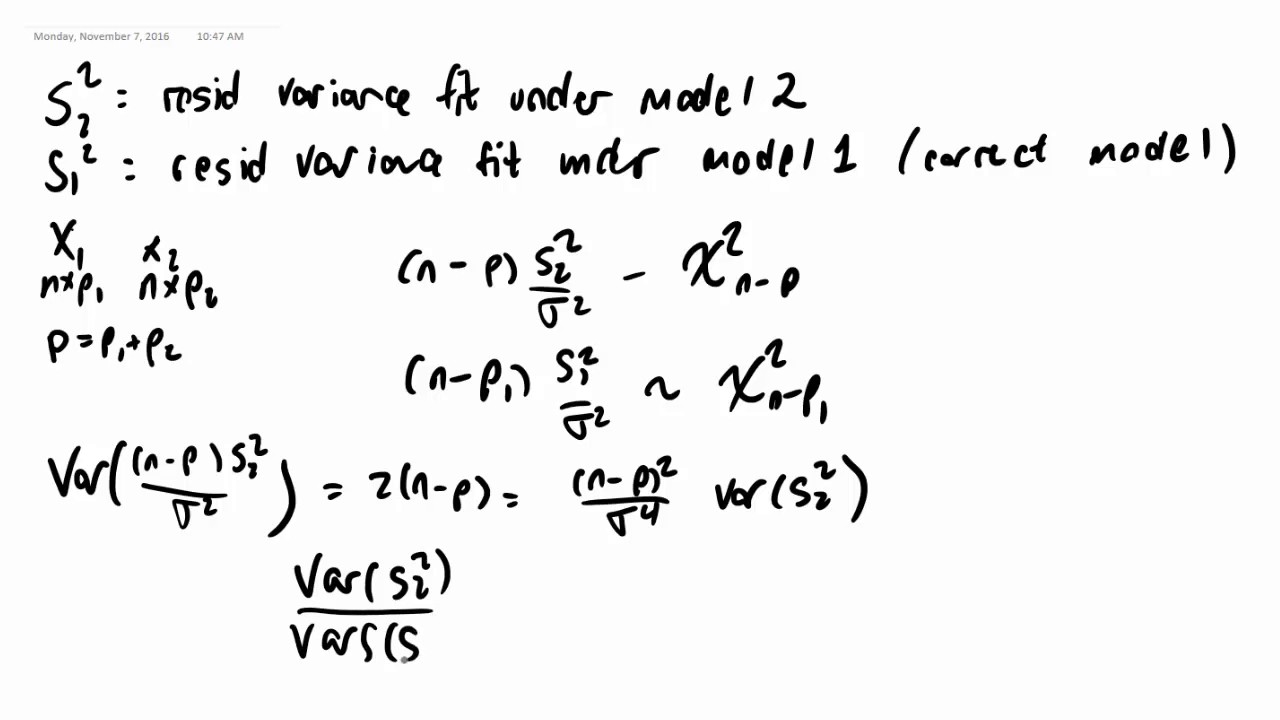 Monday, November 7, 2016 10:47 AM
S₂² = resid variance fit under model 2
S₁² = resid variance fit under model 1 (correct model)
X₁ X₂
n×p₁ n×p₂
p = p₁+p₂
(n-p) S₂²/σ² - χ²ₙ₋ₚ
(n-p₁) S₁²/σ² ~ χ²_{n-p₁}
Var((n-p)S₂²/σ²) = 2(n-p) = (n-p)²/σ⁴ var(S₂²)
Var(S₂²)
Var(S